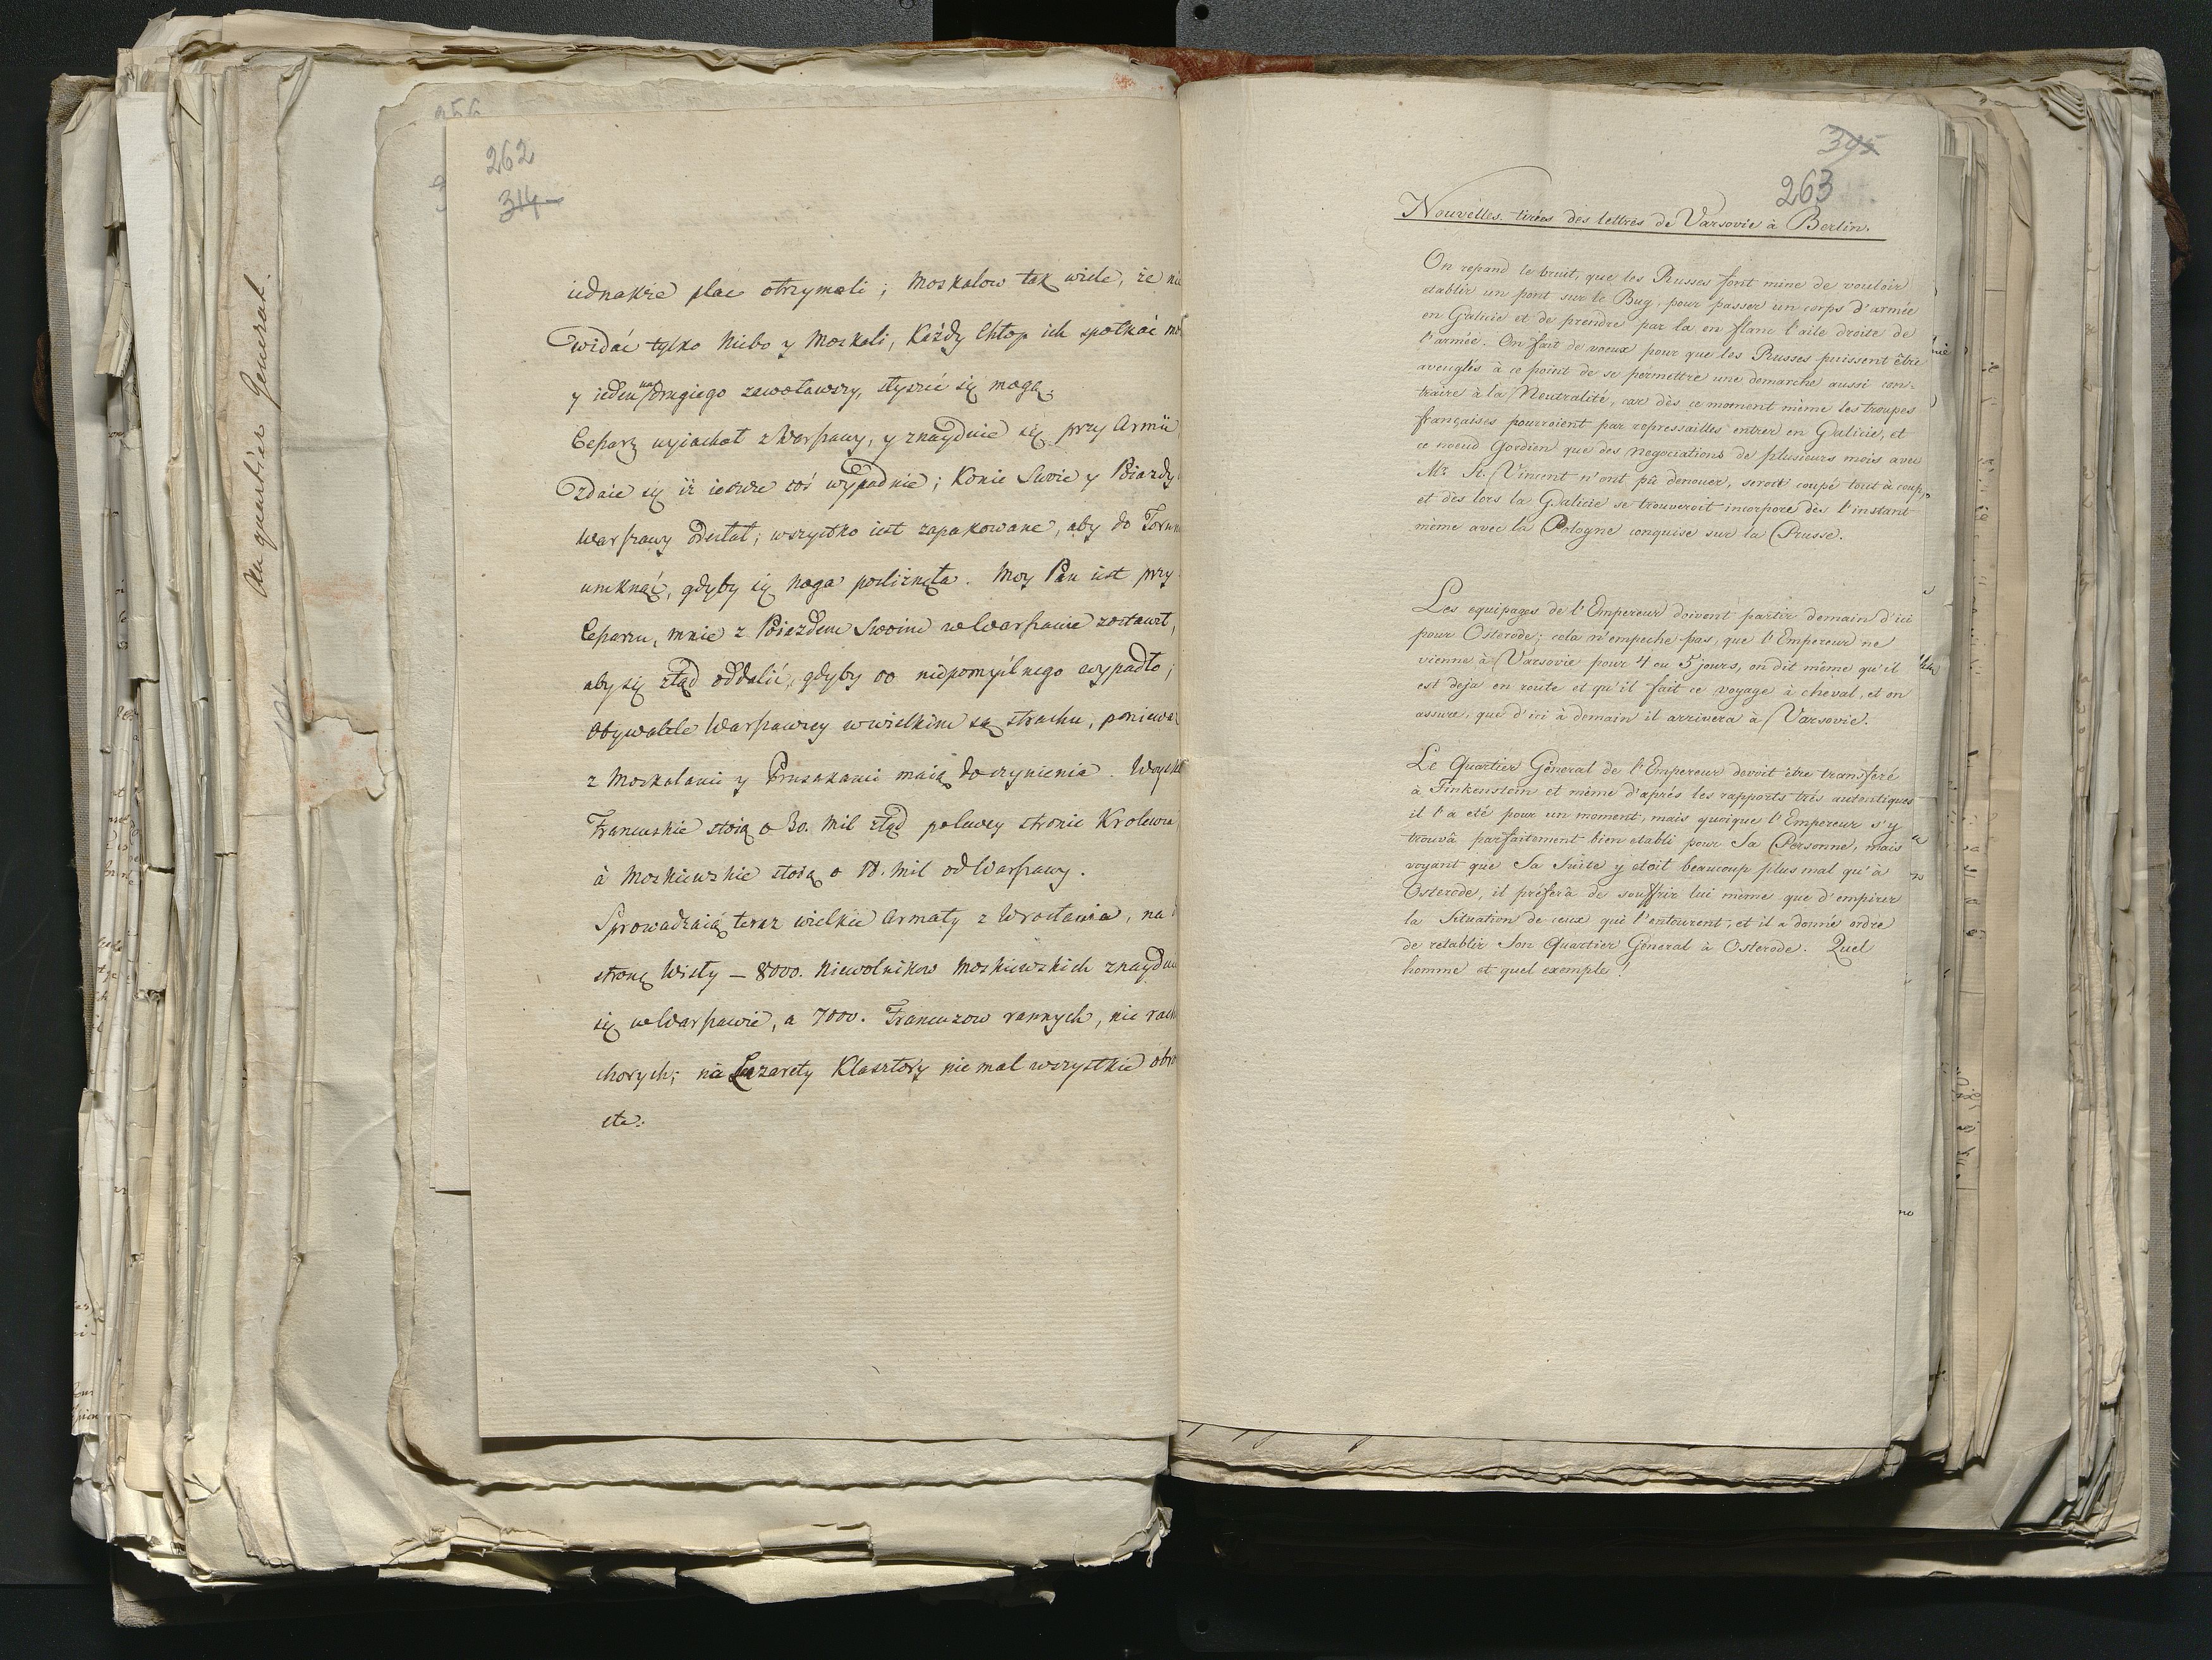 Au quartier General.
262
314
iednakże plac otrzymali; Moskalow tak wiele, że nie
widać tylko Niebo y Moskali, Każdy Chłop ich spotkać
y ieden na drugiego zawoławszy, słyszeć się mogą.
Cesarz wyiachał z Warszawy, y znayduie się przy Armii
zdaie się iż ieszcze coś wypadnie; Konie Swoie y Poiazdy
Warszawy Odesłał; wszystko iest zapakowane, aby do
umknąć, gdyby się noga pośliznęła. Moy Pan iest przy
Cesarzu, mnie z Poiazdem Swoim w Warszawie zostawił,
aby się ztąd oddalić, gdyby co niepomyślnego wypadło;
Obywatele Warszawscy w wielkim są strachu, poniewa
z Moskalami y Prusakami maią do czynienia.
Francuskie stoią o 30. Mil ztąd po lewey stronie
à Moskiewskie stoią o 18. Mil od Warszawy.
Sprowadzaią teraz wielkie Armaty z Wrocławia, na
stronę Wisły – 8000. Niewolnikow Moskiewskich znaydu
się w Warszawie, a 7000. Francuzow rannych, nie
chorych; na Lazarety Klasztory nie mal wszystkie
etc.
263
Nouvelles, tirées des lettres de Varsovie à Berlin.
On repand le bruit, que les Russes font mine de vouloir
etablir un pont sur le Bug, pour passer un corps d'armée
en Galicie et de prendre par la en flanc l'aile droite de
l'armée. On fait de voeux pour que les Russes puissent être
aveuglés à ce point de se permettre une demarche aussi con-
traire à la Neutralité, car dès ce moment même les troupes
françaises pourroient par repressailles entrer en Galicie, et
ce noeud Gordien que des negociations de plusieurs mois avec
Mr St. Vincent n'ont pû denouer, seroit coupé tout à coup,
et dès lors la Galicie se trouveroit incorporé dès l'instant
même avec la Pologne conquise sur la Prusse.
Les equipages de l'Empereur doivent partir demain d'ici
pour Osterode; cela n'empeche pas, que l'Empereur ne
vienne à Varsovie pour 4 ou 5 jours, on dit même qu'il
est deja en route et qu'il fait ce voyage à cheval, et on
assure, que d'ici à demain il arrivera à Varsovie.
Le Quartier Géneral de l'Empereur devoit être transferé
à Finkenstein et même d'aprés les rapports très autentiques
il l'a eté pour un moment, mais quoique l'Empereur s'y
trouvâ parfaitement bien etabli pour Sa Personne, mais
voyant que Sa Suite y etoit beaucoup plus mal qu'à
Osterode, il préferà de souffrir lui même que d'empirer
la Situation de ceux qui l'entourent, et il a donné ordre
de retablir Son Quartier Géneral à Osterode. Quel
homme et quel exemple!